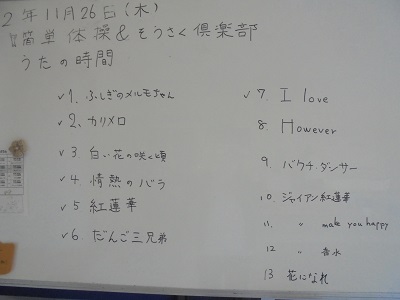 2年11月26日(木)
簡単体操&そうさく倶楽部
うたの時間
✓1. ふしぎのメルモちゃん
✓2. カリメロ
✓3 白い花の咲く頃
✓4. 情熱のバラ
✓5 紅蓮華
✓6. だんご三兄弟
✓7. I love
8. However
9. バクチ・ダンサー
10. ジャイアン紅蓮華
11. 〃 make you happy
12 〃 香水
13 花になれ